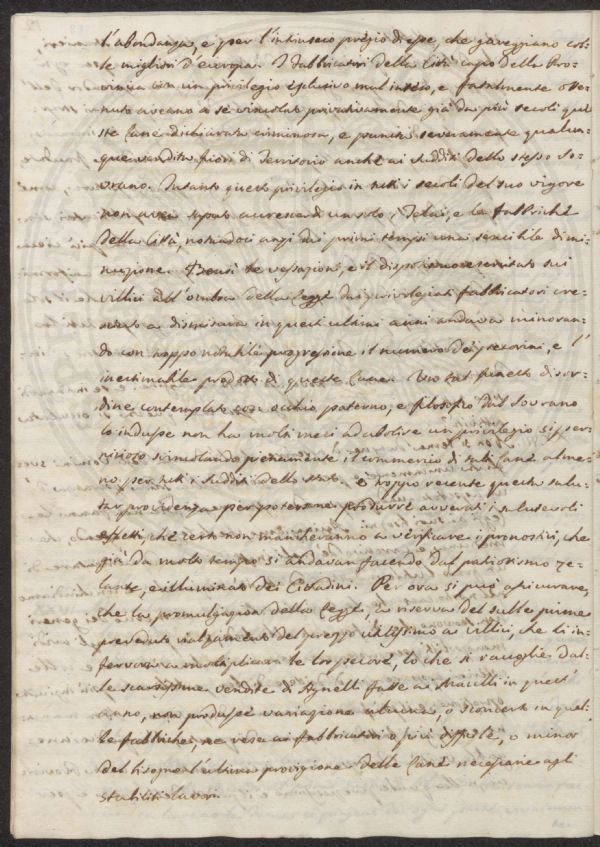 l'abondanza, e per l'intrinseco pregio di esse, che gareggiano col-
le migliori d'europa. I Fabbricatori della Città capo della Pro-
vincia con un privilegio esclusivo mal inteso, e fatalmente otte-
nuto aveano a se vincolate privativamente già da più secoli que-
ste lane dichiarata criminosa, e punita severamente qualun-
que vendita fuori di Territorio anche ai sudditi dello stesso So-
vrano. Intanto questo privilegio in tutti i secoli del suo vigore
non avea saputo accrescer di un solo i Telai, e le fabbriche
della Città, notandoci anzi dai primi tempi una sensibile dimi-
nuzione. Bensì le vessazioni, e il dispotismo esercitato sui
villici all'ombra della Legge dai privilegiati fabbricatori cre-
sciuto a dismisura in questi ultimi anni andava minoran-
do con troppo notabile progressione il numero dei pecorini, e l'
inestimabile prodotto di queste lane. Un tal funesto disor-
dine contemplato con occhio paterno, e filosofico dal Sovrano
lo indusse non ha molti mesi ad abolire un privilegio sì per-
nicioso svincolando pienamente il commercio di tali lane alme-
no per tutti i sudditi dello stato. è troppo recente questa salu-
tar providenza per poterne produrre avverati i salutevoli
effetti che certo non mancheranno a verificare i pronostici, che
già da molto tempo si andavan facendo dal patriotismo ze-
lante, e illuminato dei Cittadini. Per ora si può assicurare,
che la promulgazion della Legge a riserva del sulle prime
preveduto rialzamento del prezzo utilissimo ai villici, che li in-
fervorava a moltiplicare le lor pecore, lo che si raccoglie dal-
le scarsissime vendite di Agnelli fatte ai Macelli in quest'
anno, non produsse variazione alcuna, o sconcerto in quel-
le fabbriche, ne rese ai fabbricatori o più difficile, o minor
del bisogno l'ultima provigione delle lane necessarie agli
stabiliti lavori.